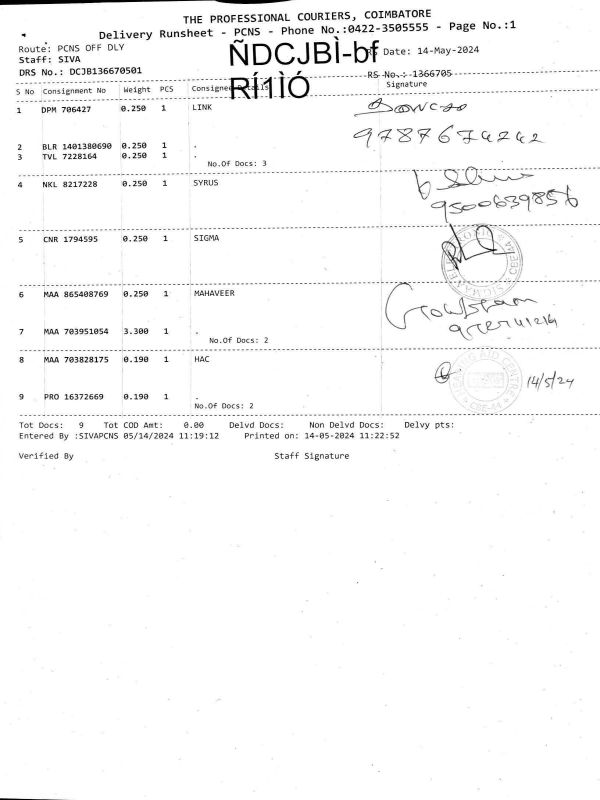 THE PROFESSIONAL COURIERS, COIMBATORE
Delivery Runsheet - PCNS - Phone No.:0422-3505555 - Page No.:1
Route: PCNS OFF DLY
ÑDCJBÌ-bf
RS Date: 14-May-2024
Staff: SIVA
DRS No.: DCJB136670501
RÍ1ÌÓ
RS No.: 1366705
S No Consignment No Weight PCS Consignee Details Signature
1 DPM 706427 0.250 1 LINK
9787674242
2 BLR 1401380690 0.250 1 .
3 TVL 7228164 0.250 1 .
No.Of Docs: 3
4 NKL 8217228 0.250 1 SYRUS
9500639856
5 CNR 1794595 0.250 1 SIGMA
6 MAA 865408769 0.250 1 MAHAVEER
7 MAA 703951054 3.300 1 .
No.Of Docs: 2
8 MAA 703828175 0.190 1 HAC
14/5/24
9 PRO 16372669 0.190 1 .
No.Of Docs: 2
Tot Docs: 9 Tot COD Amt: 0.00 Delvd Docs: Non Delvd Docs: Delvy pts:
Entered By :SIVAPCNS 05/14/2024 11:19:12 Printed on: 14-05-2024 11:22:52
Verified By Staff Signature